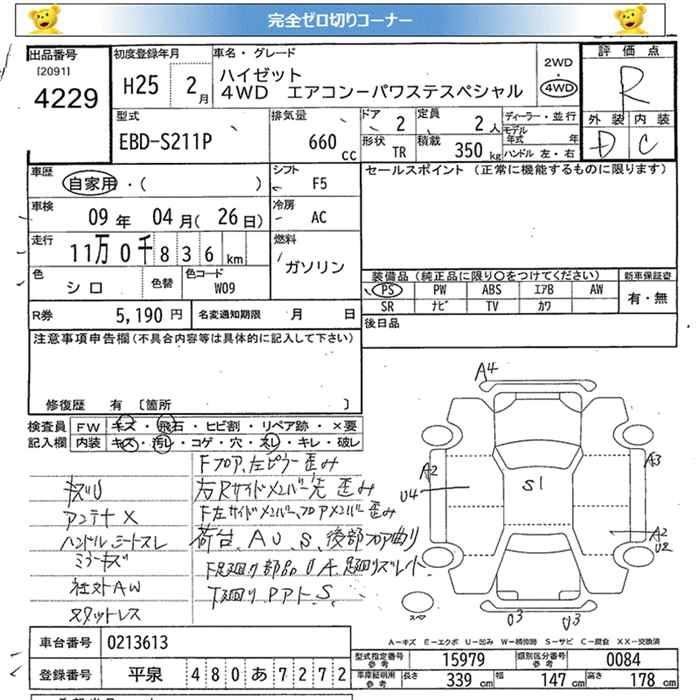 完全ゼロ切りコーナー
出品番号 初度登録年月 車名・グレード 評価点
[2091] 4229 H25 2月 ハイゼット 2WD
4WD エアコンーパワステスペシャル 4WD R
型式 排気量 ドア 定員 ディーラー・並行 外装 内装
EBD-S211P 660cc 2 2人 モデル年式 年 D C
形状 TR 積載 350kg ハンドル 左・右
車歴 自家用・( ) シフト F5 セールスポイント (正常に機能するものに限ります)
車検 09年 04月(26日) 冷房 AC
走行 11万0千836km 燃料 ガソリン
色 シロ 色替 色コード W09
装備品 (純正品に限り○をつけてください) 新車保証書
PS PW ABS エアB AW 有・無
SR ナビ TV カワ
R券 5,190円 名変通知期限 月 日 後日品
注意事項申告欄(不具合内容等は具体的に記入して下さい)
修復歴 有 〔箇所 〕
検査員 FW キズ・飛石・ヒビ割・リペア跡・×要
記入欄 内装 キズ・汚レ・コゲ・穴・スレ・キレ・破レ
Fフロア、左ピラー歪み
キズU 右Rサイドメンバー先歪み
アンテナX F左サイドメンバー、フロアメンバー歪み
ハンドル、シートスレ 荷台、A U、S、後部フロア曲り
ミラーキズ F足廻り部品U A、足廻りズレ
社外AW 下廻り、P、P、ト、S、
スタットレス
A4
A2 A3
U4 S1
A2
U2
U3 U3
A-キズ E-エクボ U-凹み W-補修跡 S-サビ C-腐食 XX-交換済
車台番号 0213613 型式指定番号 参考 15979 類別区分番号 参考 0084
登録番号 平泉 480 あ 7272 車庫証明用 参考 長さ 339cm 幅 147cm 高さ 178cm